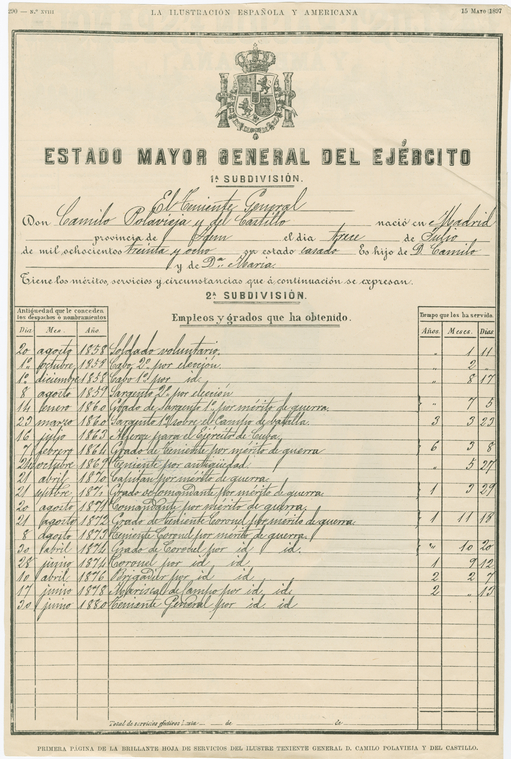 290 — N.º XVIII
LA ILUSTRACIÓN ESPAÑOLA Y AMERICANA
15 MAYO 1897
ESTADO MAYOR GENERAL DEL EJÉRCITO
1.ª SUBDIVISIÓN.
El Teniente General
Don Camilo Polavieja y del Castillo nació en Madrid
provincia de Idem el día trece de Julio
de mil ochocientos treinta y ocho su estado casado Es hijo de D. Camilo
y de D.ª María.
Tiene los méritos, servicios y circunstancias que á continuación se expresan.
2.ª SUBDIVISIÓN.
Antigüedad que le conceden los despachos ó nombramientos
Empleos y grados que ha obtenido.
Tiempo que los ha servido
Día Mes Año Años Meses Días
20 agosto 1858 Soldado voluntario. " 1 11
1.º octubre 1858 Cabo 2.º por elección. " 2 "
1.º diciembre 1858 Cabo 1.º por id. " 8 17
8 agosto 1859 Sargento 2.º por elección
14 enero 1860 Grado de sargento 1.º por mérito de guerra. " 7 5
23 marzo 1860 Sargento 1.º sobre el Campo de batalla. 3 3 23
16 julio 1863 Alférez para el Ejército de Cuba.
7 febrero 1864 Grado de Teniente por mérito de guerra 6 3 8
24 octubre 1869 Teniente por antigüedad. " 5 27
21 abril 1870 Capitán por mérito de guerra
21 octubre 1870 Grado de comandante por mérito de guerra. 1 3 29
20 agosto 1871 Comandante por mérito de guerra.
21 agosto 1872 Grado de Teniente Coronel por mérito de guerra 1 11 18
8 agosto 1873 Teniente Coronel por mérito de guerra.
30 abril 1874 Grado de Coronel por id. id. " 10 20
28 junio 1874 Coronel por id. id. 1 9 12
10 abril 1876 Brigadier por id. id. 2 2 7
17 junio 1878 Mariscal de Campo por id. id. 2 " 13
30 junio 1880 Teniente General por id. id
Total de servicios efectivos hasta de de
PRIMERA PÁGINA DE LA BRILLANTE HOJA DE SERVICIOS DEL ILUSTRE TENIENTE GENERAL D. CAMILO POLAVIEJA Y DEL CASTILLO.